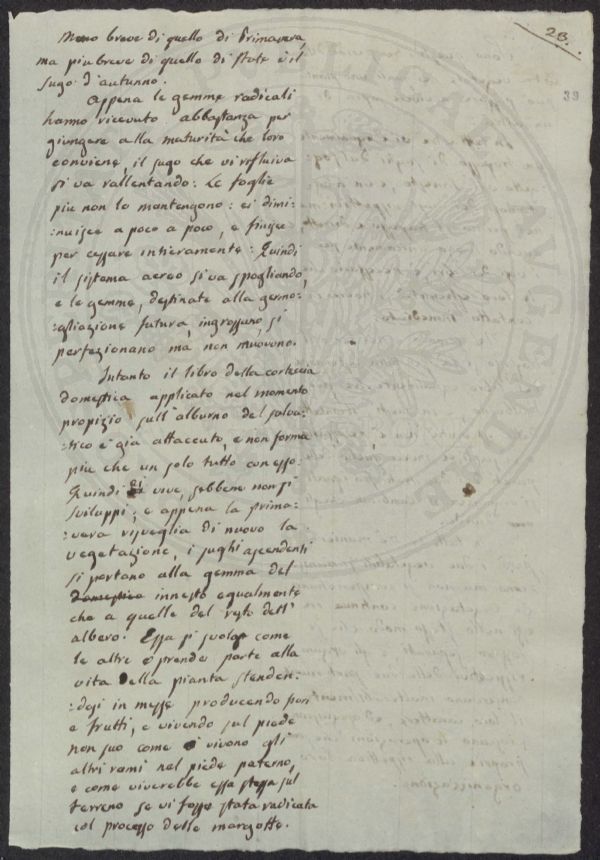 23.
39
Meno breve di quello di Primavera,
ma piu breve di quello di State è il
sugo d'autunno.
Appena le gemme radicali
hanno ricevuto abbastanza per
giungere alla maturità che loro
conviene, il sugo che vi rifluiva
si va rallentando: Le foglie
piu non lo mantengono: ei dimi-
:nuisce a poco a poco, e finisce
per cessare intieramente: Quindi
il sistema aereo si va spogliando,
e le gemme, destinate alla germo-
:gliazione futura, ingrossano, si
perfezionano ma non muovono.
Intanto il libro della corteccia
domestica applicato nel momento
propizio sull'alburno del salva-
:tico è gia attaccato, e non forma
piu che un solo tutto con esso.
Quindi vive, sebbene non si
sviluppi; e appena la prima-
:vera risveglia di nuovo la
vegetazione, i sughi ascendenti
si portano alla gemma del
innesto egualmente
che a quelle del resto dell'
albero. Essa si svolge come
le altre prende parte alla
vita della pianta stenden:
:dosi in messe producendo fiori
e frutti, e vivendo sul piede
non suo come vivono gli
altri rami nel piede paterno,
e come viverebbe essa stessa sul
terreno se vi fosse stata radicata
col processo delle margotte.